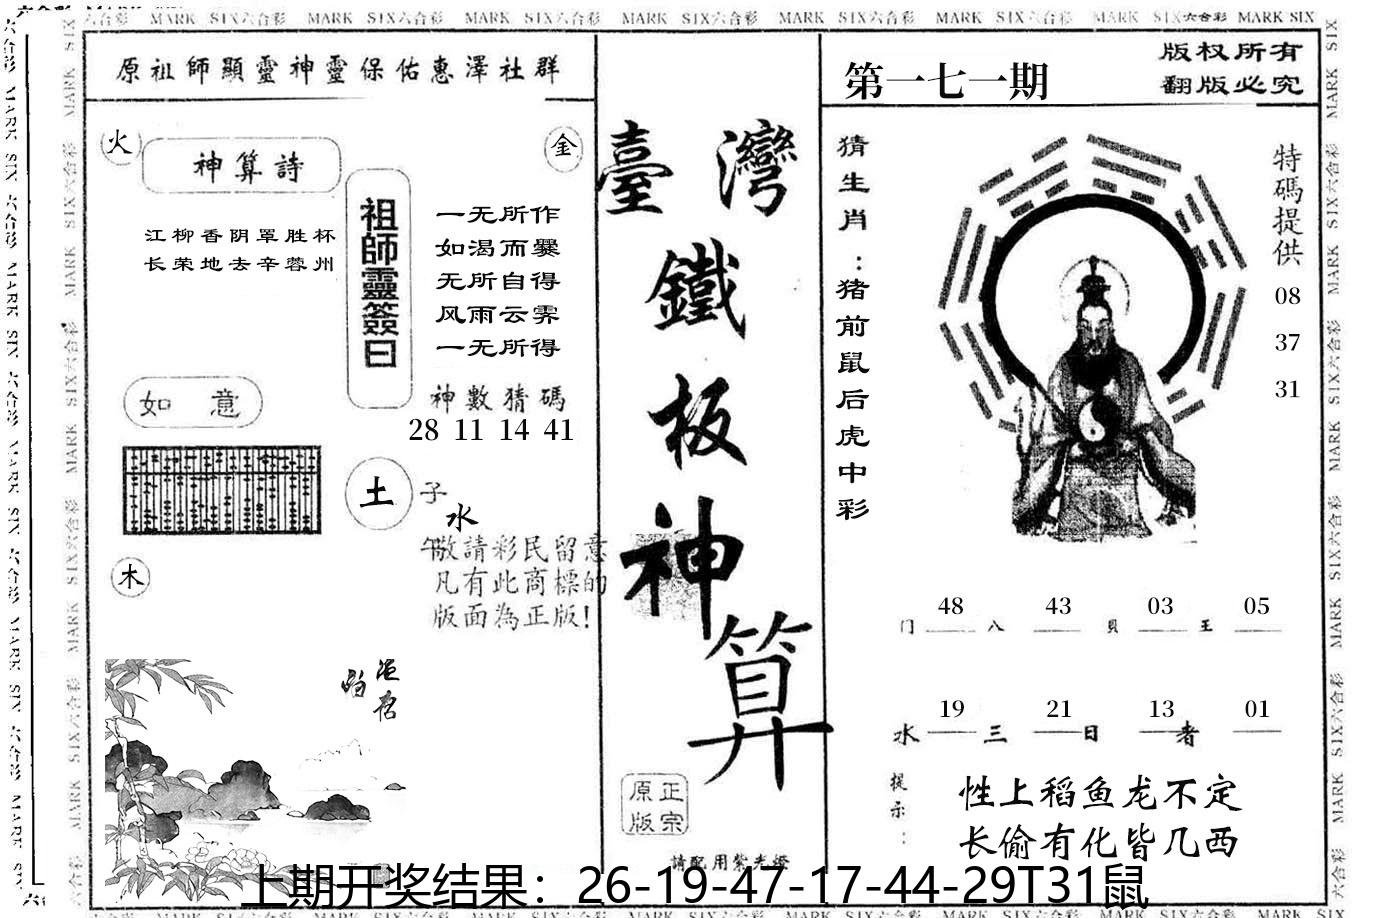 MARK SIX六合彩 MARK SIX六合彩 MARK SIX六合彩 MARK SIX六合彩 MARK SIX六合彩 MARK SIX六合彩 MARK SIX六合彩 MARK SIX
原祖師顯靈神靈保佑惠澤社群
火
金
神算詩
江柳香阴罩胜杯
长荣地去辛蓉州
祖師靈簽曰
一无所作
如渴而爨
无所自得
风雨云霁
一无所得
神數猜碼
28 11 14 41
如意
土
子
水
午
木
敬請彩民留意
凡有此商標的
版面為正版!
臺灣
鐵
板
神
算
原正
版宗
請配用紫光燈
第一七一期
版权所有
翻版必究
猜生肖:猪前鼠后虎中彩
特碼提供
08
37
31
48 43 03 05
门 八 贝 王
19 21 13 01
水 三 日 者
提示:
性上稻鱼龙不定
长偷有化皆几西
上期开奖结果：26-19-47-17-44-29T31鼠